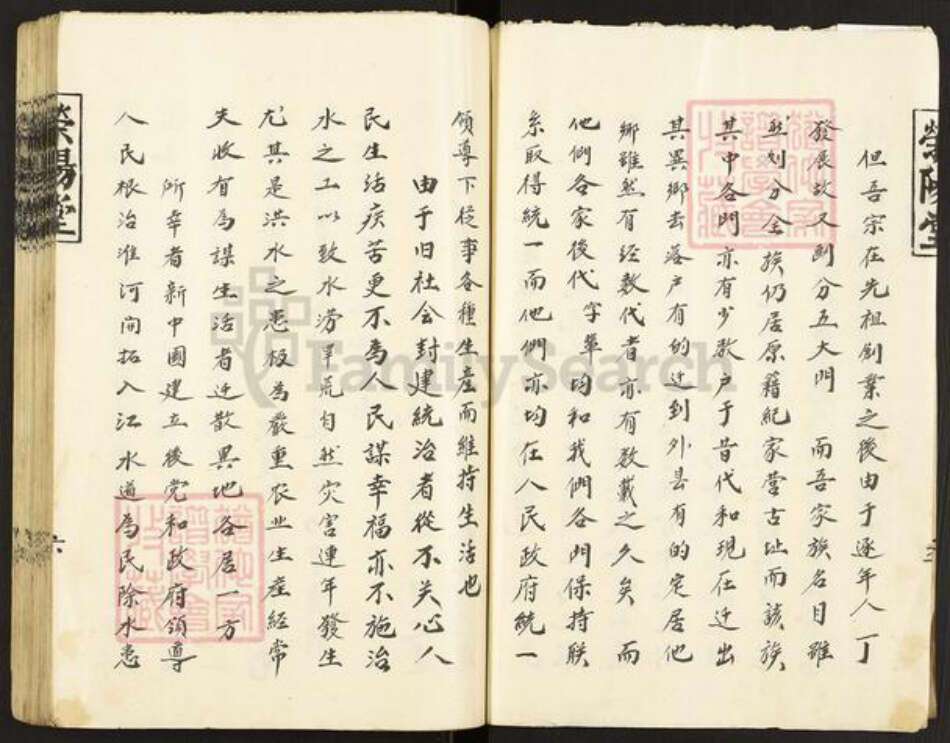 但吾宗在先祖創業之後由于逐年人丁
發展故又劃分五大門　而吾家族名目雖
然划分全族仍居原籍紀家營古址而該族
其中各門亦有少数户于昔代和現在迁出
其異鄉去落户有的迁到外县有的定居他
鄉雖然有经数代者亦有数載之久矣　而
他們各家後代字輩均和我們各門保持联
系取得统一而他們亦均在人民政府統一
領導下從事各種生產而維持生活也
由于旧社会封建統治者從不关心人
民生活疾苦更不為人民謀幸福亦不施治
水之工以致水涝旱荒自然灾害連年發生
尤其是洪水之患极為嚴重农业生產經常
失收有為謀生活者迁散異地各居一方
所幸者新中國建立後党和政府領導
人民根治淮河開拓入江水道為民除水患
滎陽堂
六
滎陽堂
FamilySearch